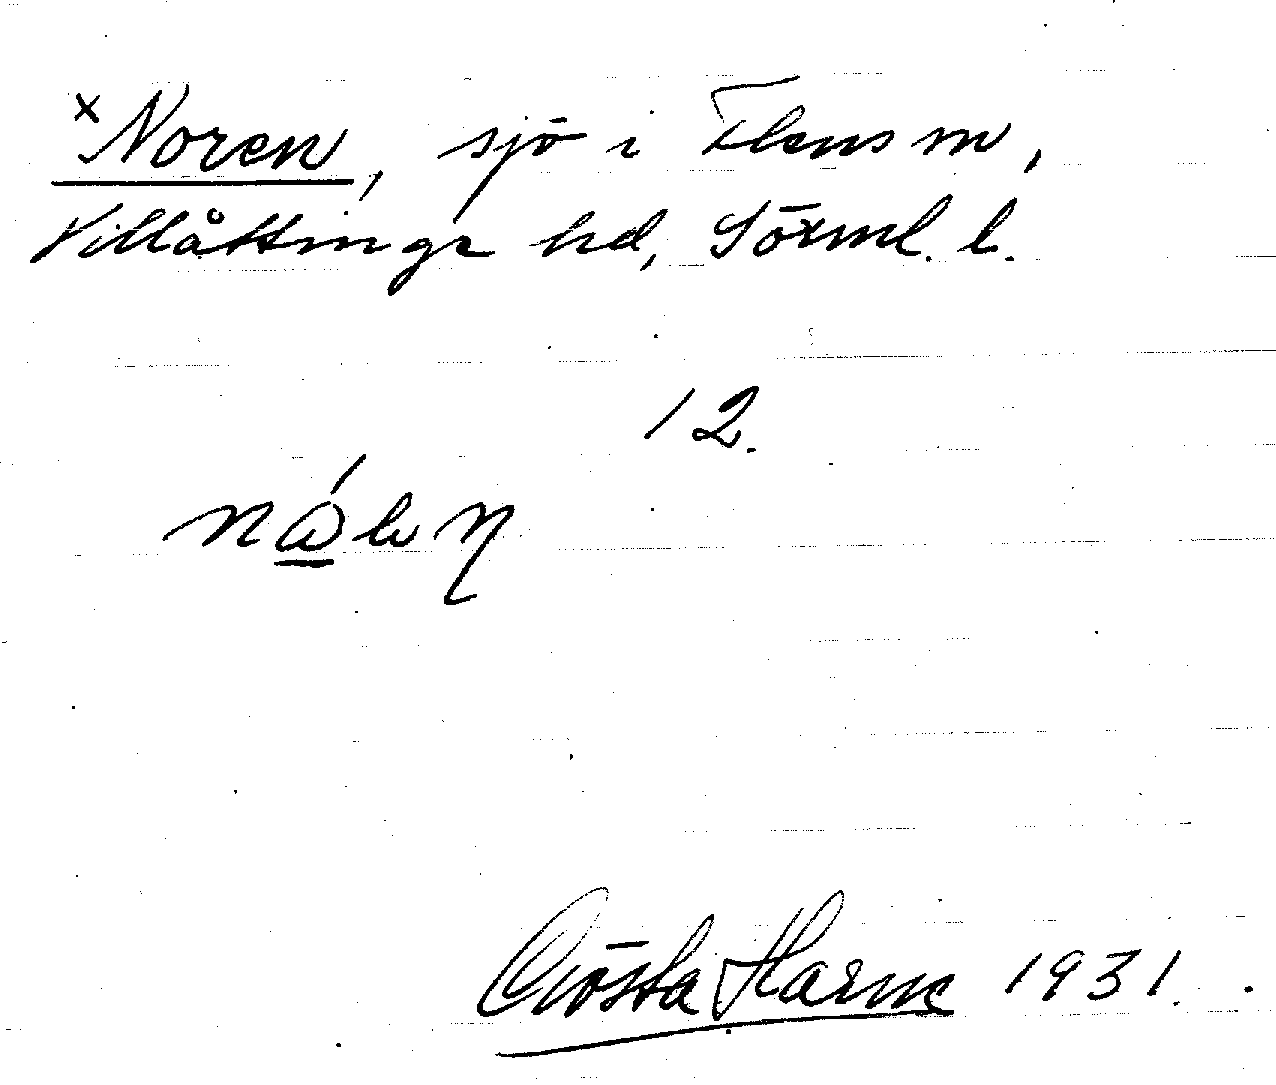 ×Noren, sjö i Flens sn,
Villåttinge hd, Sörml. l.
12.
Gösta Harne 1931.